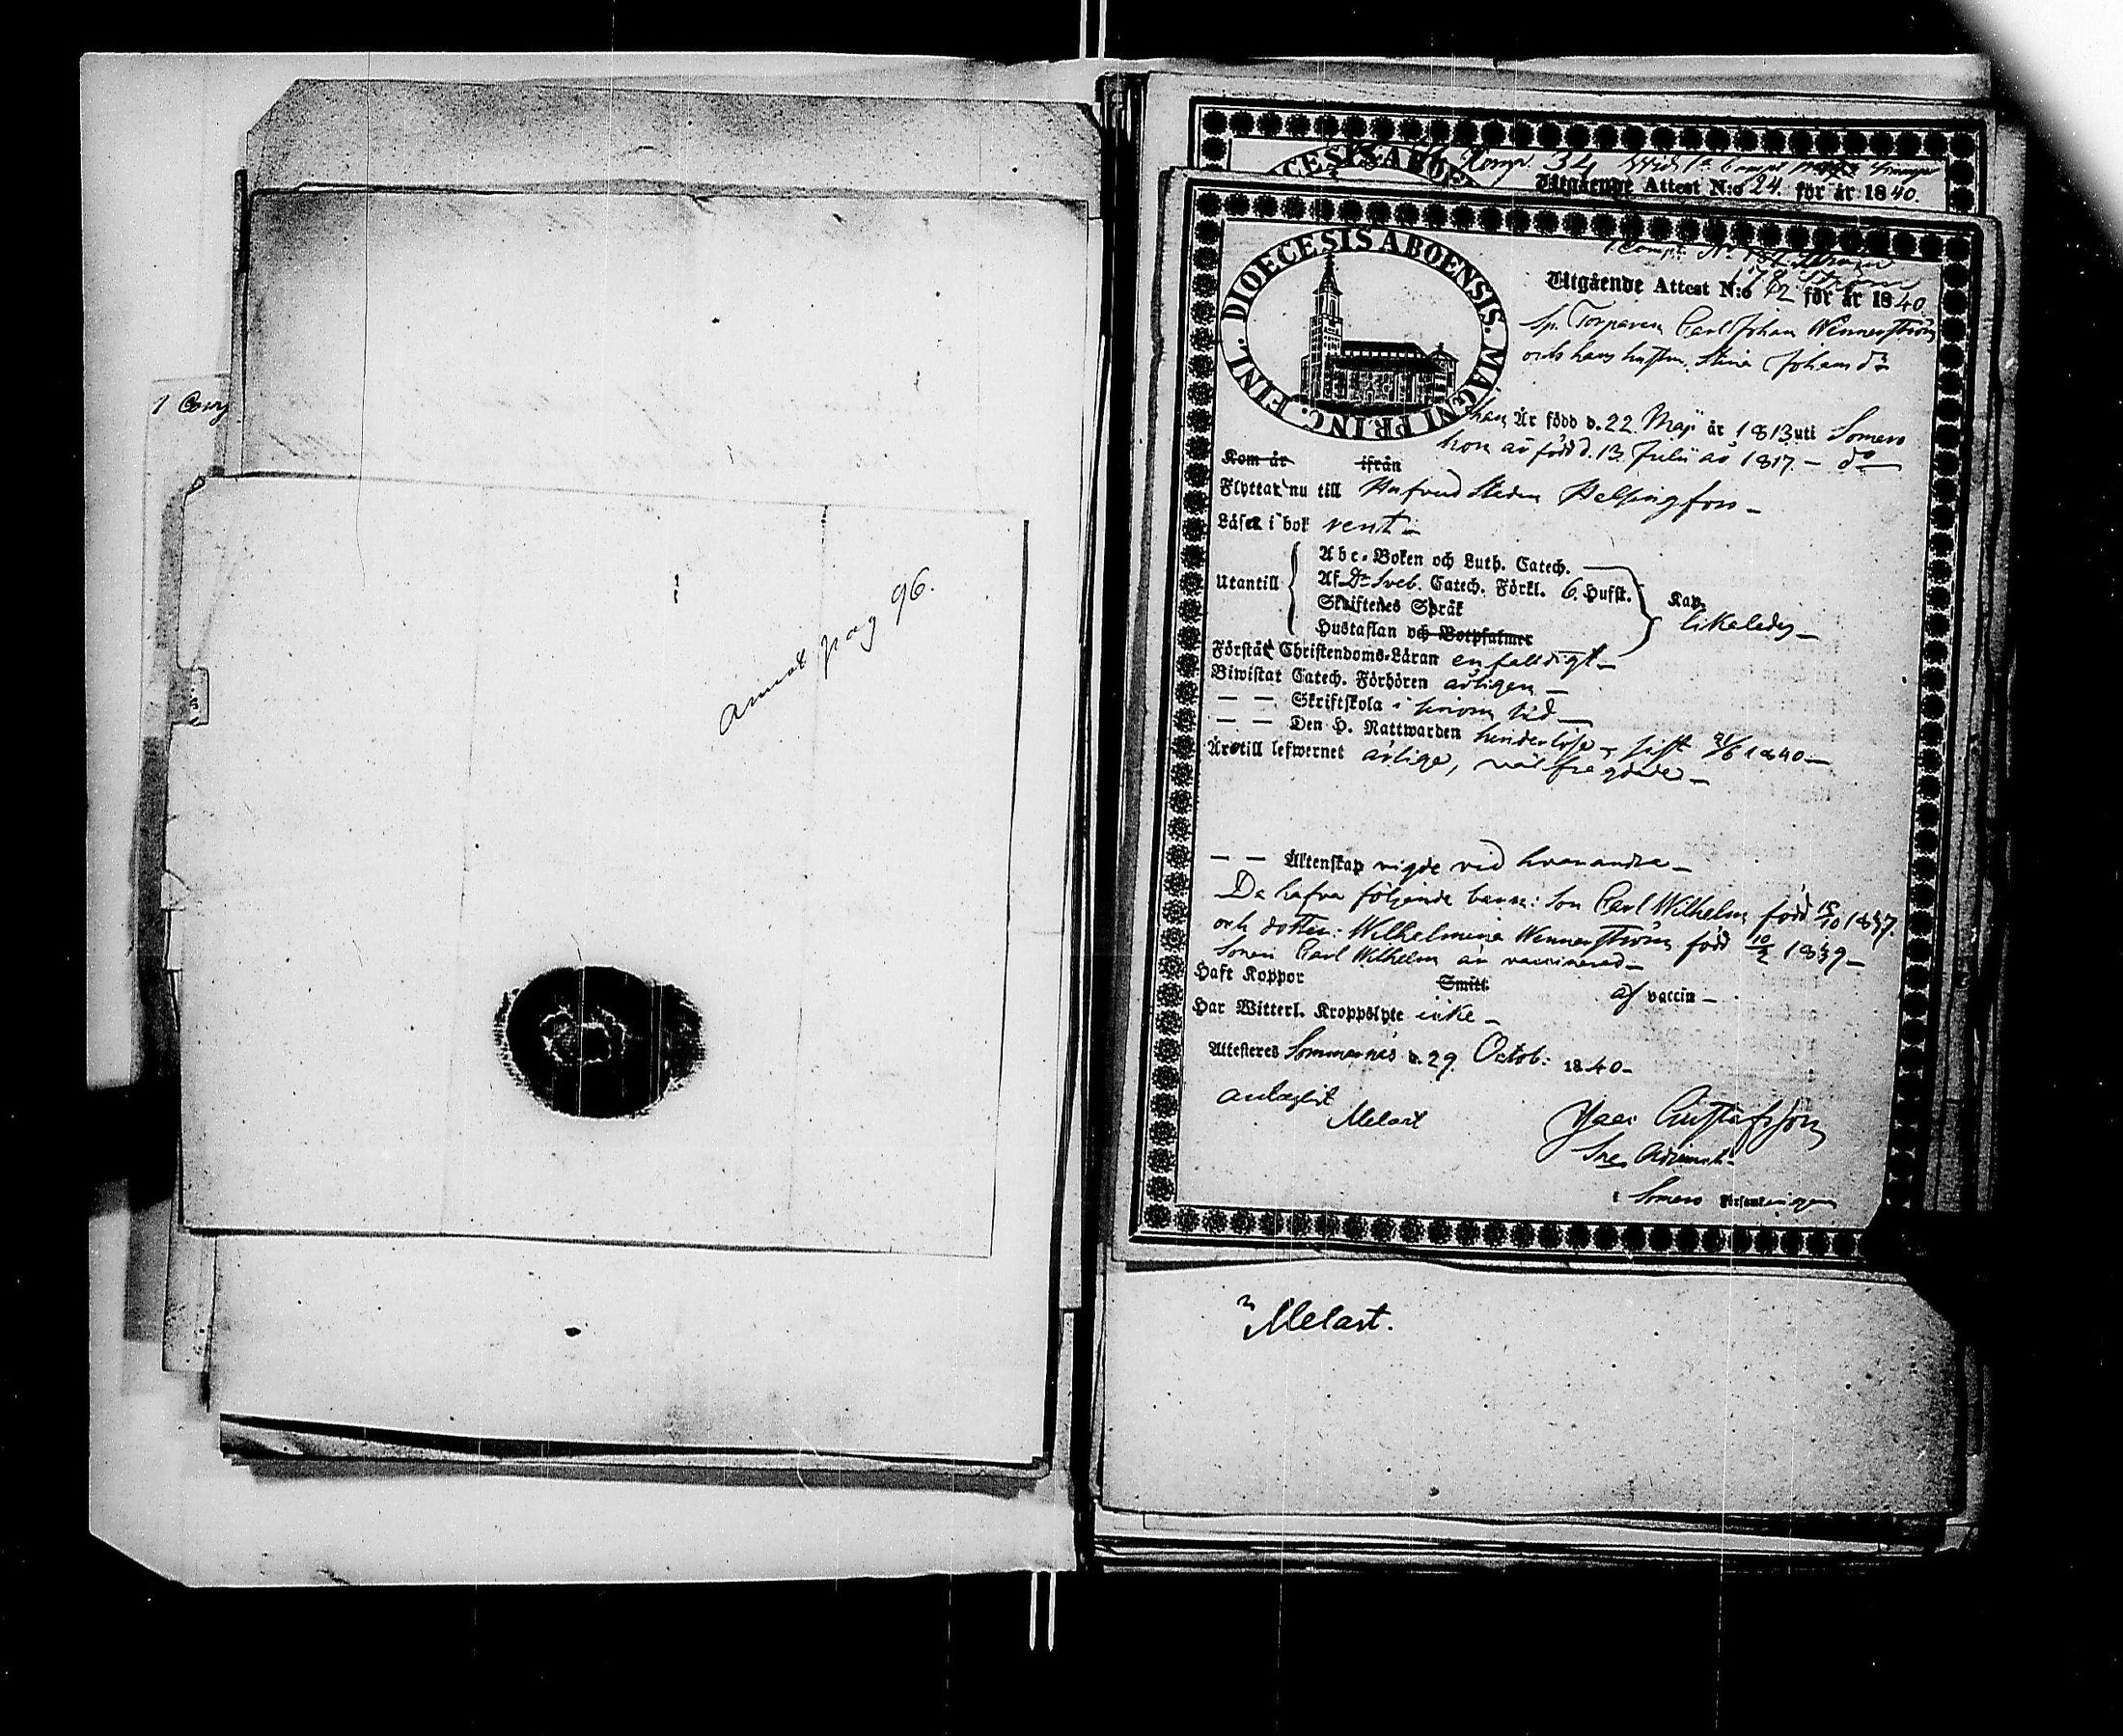 1 Comp
amnot pag 96.
DIOECESIS ABOENSIS
Komp. 34
Utgående Attest N:o 24. för år 1840.
DIOECESIS ABOENSIS. MAGNI PRINC. FINL.
Comp. N:o
Utgående Attest N:o 72 för år 1840.
Sp. Torparen Carl Johan Wennerström
och hans hustru Stina Johansdr
han Är född d. 22 Maji år 1813 uti Somero
hon är född d. 13 Julii år 1817 – do
Kom år ifrån
Flyttar nu till Hufvud Staden Helsingfors –
Läser i bok rent –
Utantill
Abc-Boken och Luth. Catech.
Af Dr Sveb. Catech. Förkl. 6. Hufst.
Skriftenes Språk
Hustaflan och Botpsalmer
Kap.
likaledes –
Förstår Christendoms-Läran enfalldigt –
Biwistat Catech. Förhören årligen –
— — Skriftskola i sinom tid –
— — Den H. Nattwarden hinderlöse – sist 21/6 1840 –
Äro till lefwernet ärlige, wälfrägdade –
— — Äktenskap vigde vid hvarandra –
De hafva följande barn: Son Carl Wilhelm född 15/10 1837.
och dotter: Wilhelmina Wennerström född 10/2 1839 –
Sonen Carl Wilhelm är vaccinerad –
Haft Koppor Smitt. af vaccin –
Har Witterl. Kroppslyte icke –
Attesteras Sommarnäs d. 29 Octob: 1840 –
Melart
Gustafsson
i Somero Församlingen
Melart.